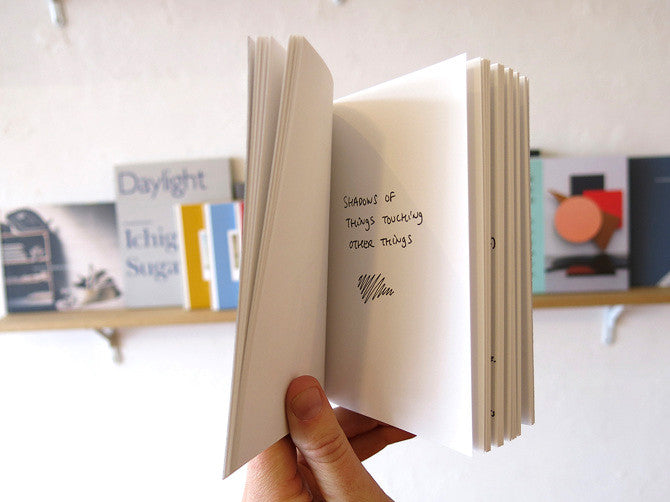 Daylight
Ichig
Suga
SHADOWS OF
THINGS TOUCHING
OTHER THINGS